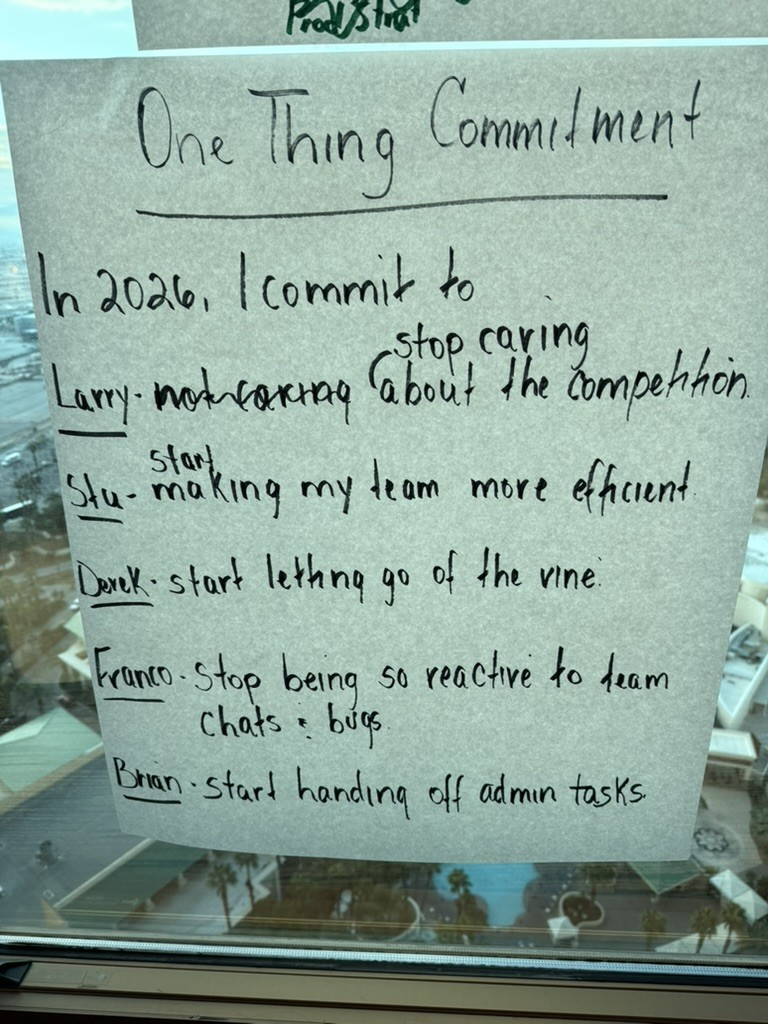 Prod/Strat
One Thing Commitment
In 2026, I commit to
stop caring
Larry - not caring about the competition.
start
Stu - making my team more efficient.
Derek - start letting go of the vine.
Franco - Stop being so reactive to team
chats & bugs.
Brian - start handing off admin tasks.